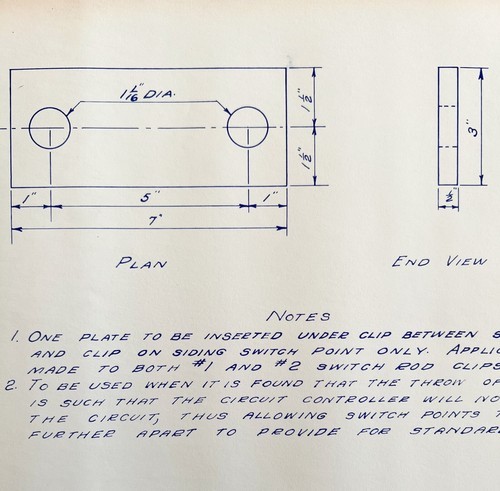 1 1/16" DIA.
1 1/2"
1 1/2"
3"
1"
5"
1"
1/2"
7"
PLAN
END VIEW
NOTES
1. ONE PLATE TO BE INSERTED UNDER CLIP BETWEEN
AND CLIP ON SIDING SWITCH POINT ONLY. APPLIC
MADE TO BOTH #1 AND #2 SWITCH ROD CLIPS
2. TO BE USED WHEN IT IS FOUND THAT THE THROW OF
IS SUCH THAT THE CIRCUIT CONTROLLER WILL NO
THE CIRCUIT, THUS ALLOWING SWITCH POINTS T
FURTHER APART TO PROVIDE FOR STANDAR